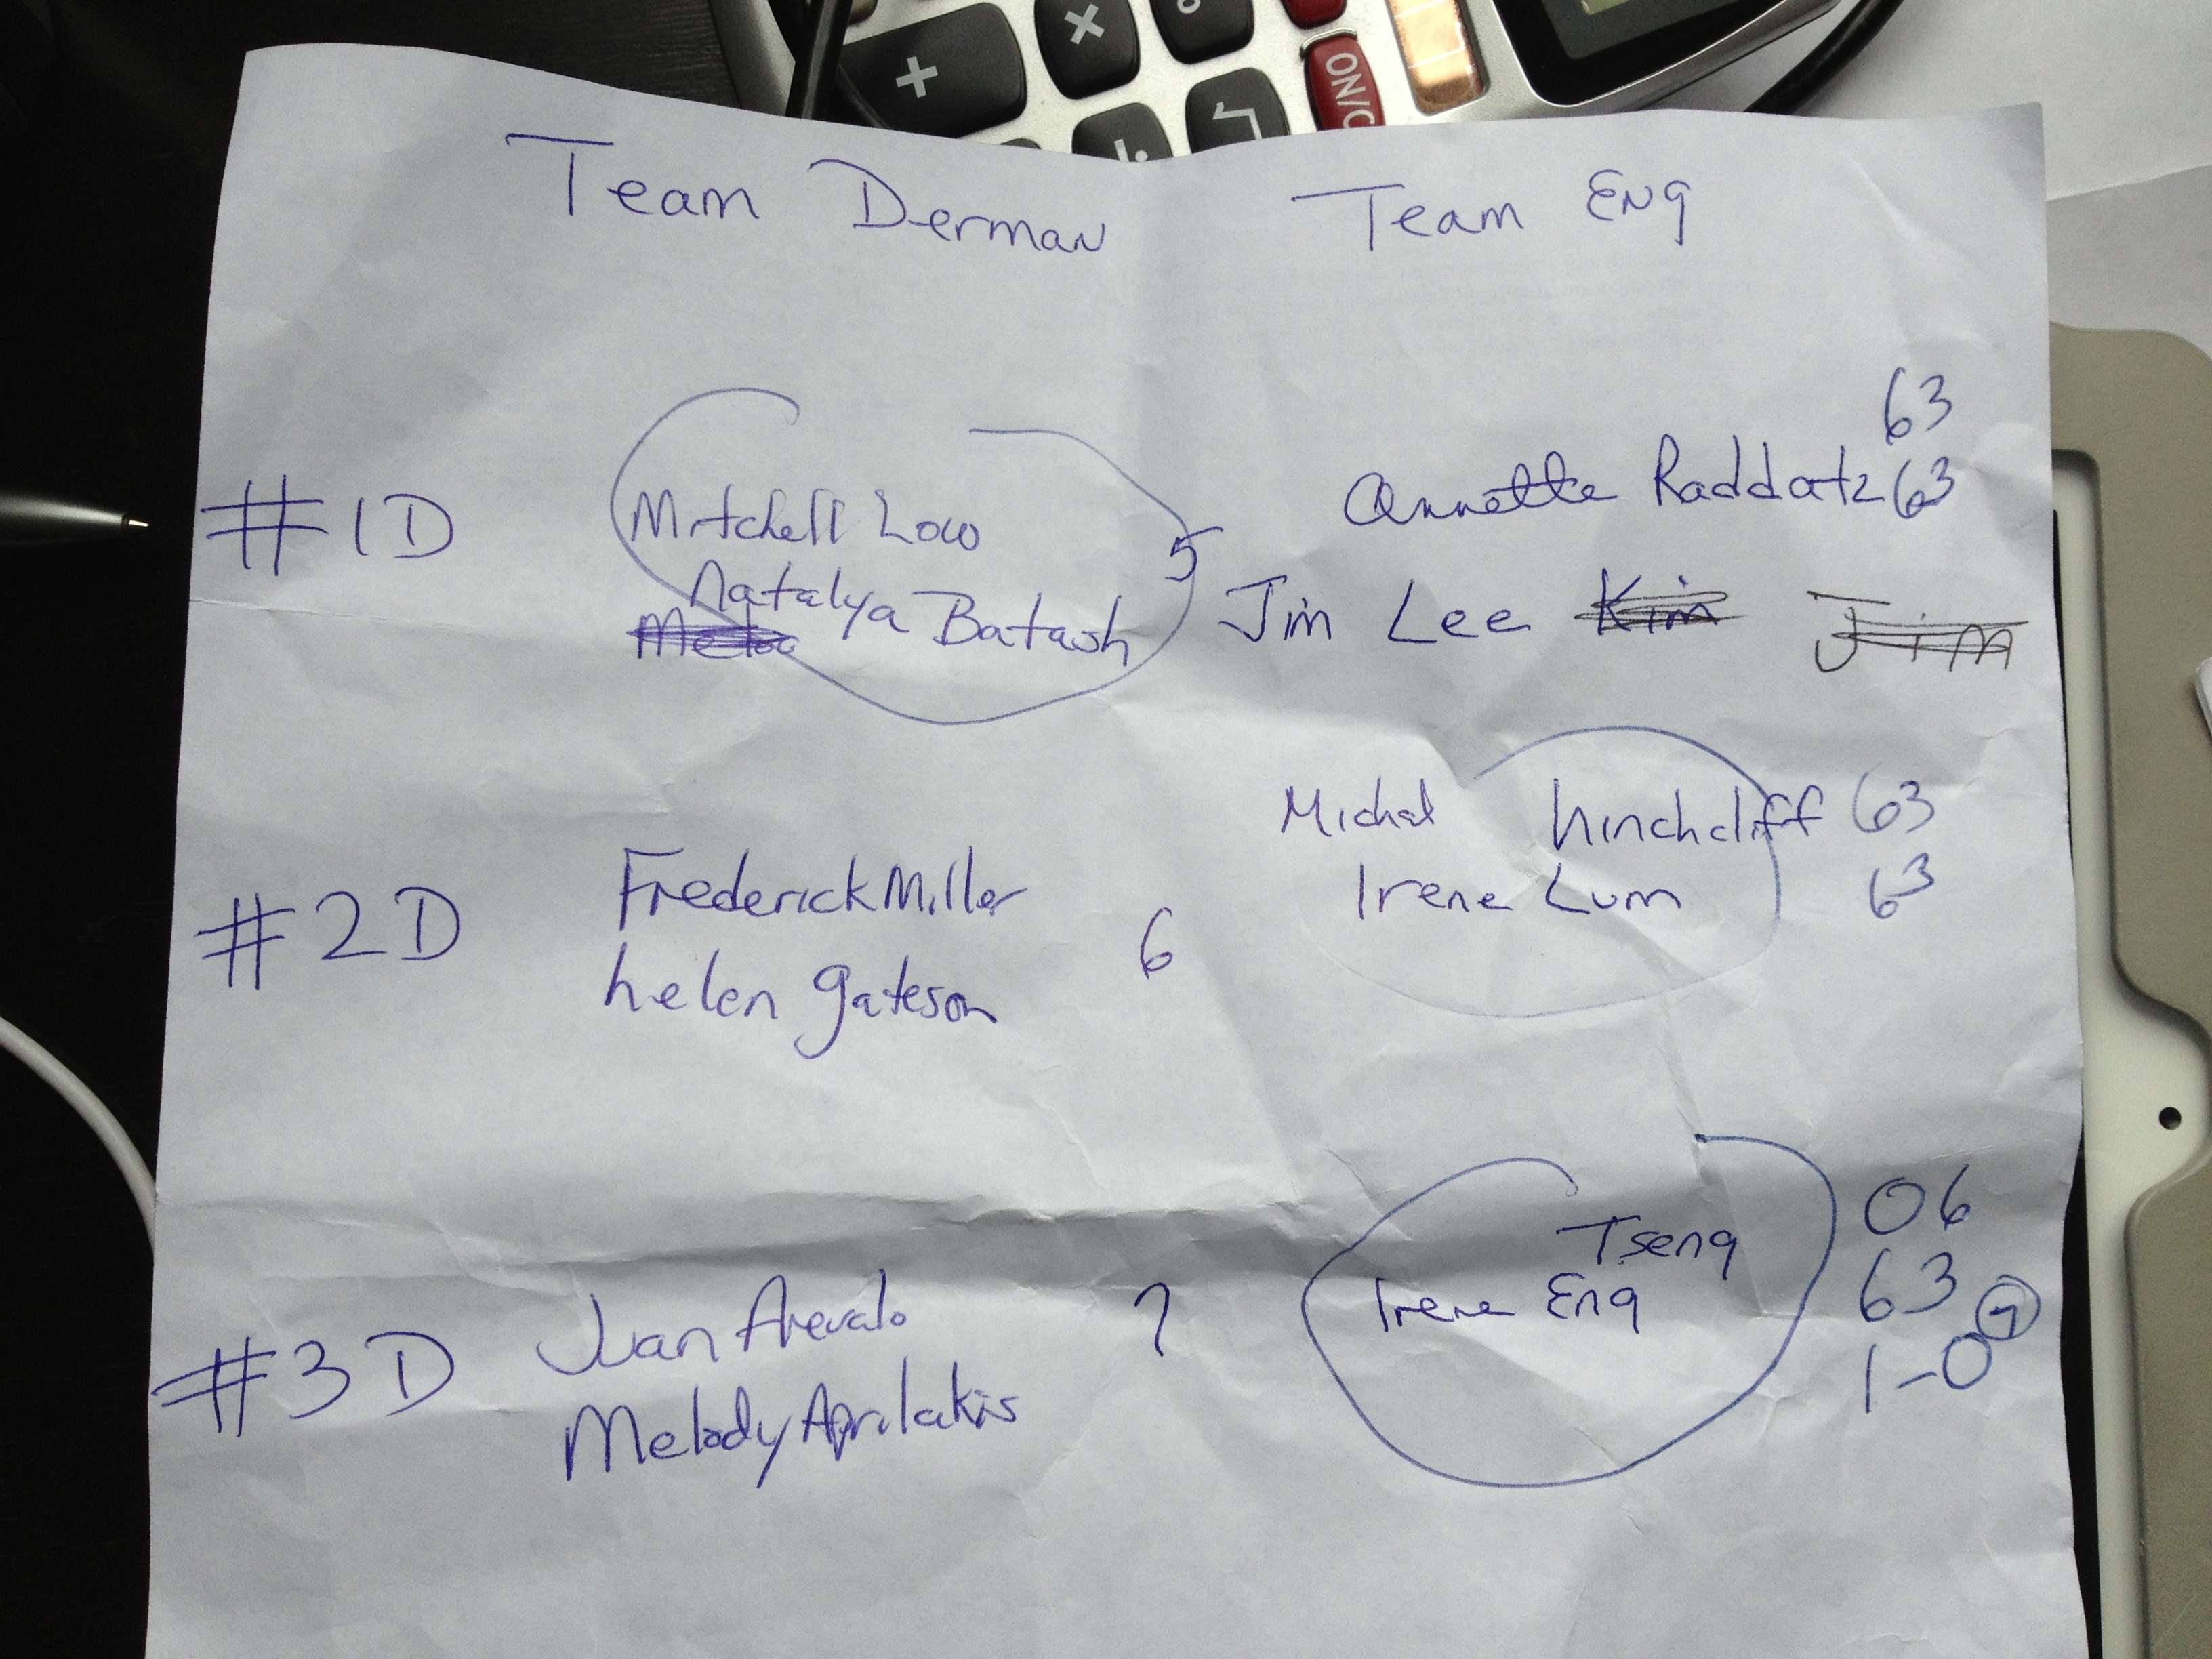 + × ON/C
÷ √
Team Derman Team Eng
63
#1D Mitchell Low Annette Raddatz 63
Natalya Batash 5 Jim Lee Kim Jim
Michal hinchcliff 63
#2D Frederick Miller Irene Lum 63
helen gateson 6
Tseng 06
#3D Juan Arevalo 7 Irene Eng 63
Melody Aprilakis 1-0 7